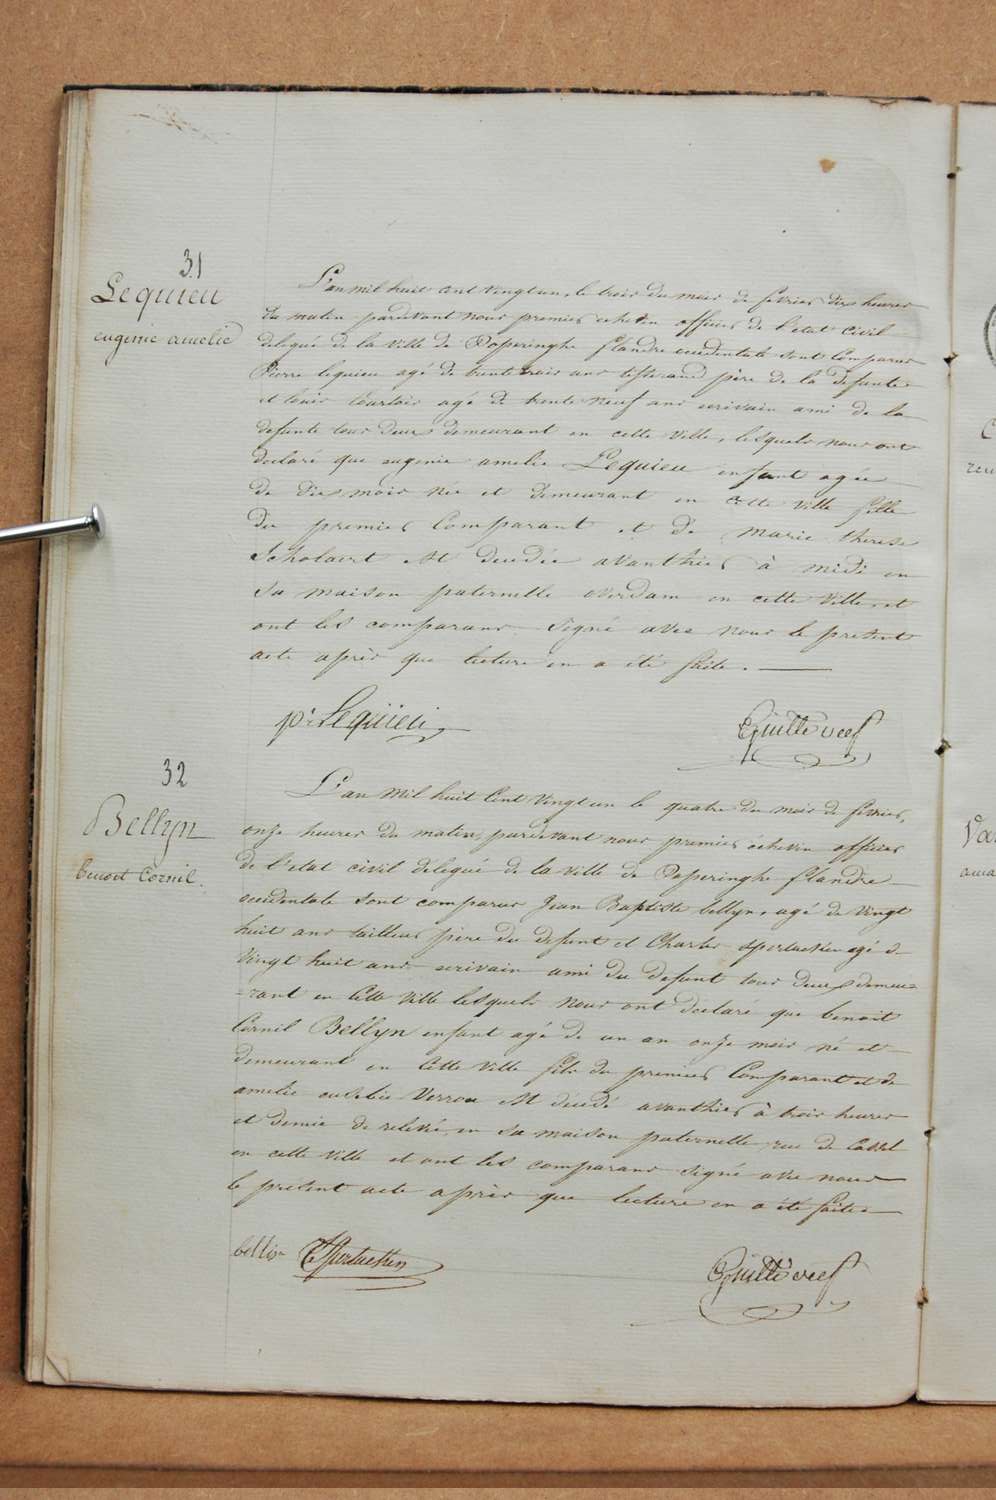 31
Lequieu
eugenie amelie
L'an mil huit cent vingt un, le trois du mois de fevrier dix heures
du matin pardevant nous premier echevin officier de l'etat civil
delegué de la ville de Poperinghe flandre occidentale sont comparus
Pierre lequieu agé de trente trois ans père de la defunte
et louis agé de trente neuf ans ecrivain ami de la
defunte tous deux demeurant en cette ville, lesquels nous ont
declaré que eugenie amelie Lequieu enfant agée
de dix mois née et demeurant en cette ville fille
du premier Comparant et de marie therese
Scholaert est decedée avanthier à midi en
sa maison paternelle overdam en cette ville, et
ont les comparans signé avec nous le present
acte après que lecture en a été faite.
pr Lequieu
32
Bellyn
benoit Cornil.
L'an mil huit Cent vingt un le quatre du mois de fevrier,
onze heures du matin, pardevant nous premier échevin officier
de l'etat civil délegué de la ville de Poperinghe flandre
occidentale sont comparus Jean Baptiste bellyn, agé de vingt
huit ans tailleur père du defunt et Charles agé de
vingt huit ans ecrivain ami du defunt tous deux demeu=
=rant en Cette ville lesquels nous ont déclaré que benoit
Cornil Bellyn enfant agé de un an onze mois né et
demeurant en Cette ville fils du premier Comparant et de
amelie eusebie Verrou est décédé avanthier à trois heures
et demie de relevé, en sa maison paternelle, rue de Cassel
en cette ville et ont les comparans signé avec nous
le présent acte après que lecture en a été faite.
bellin